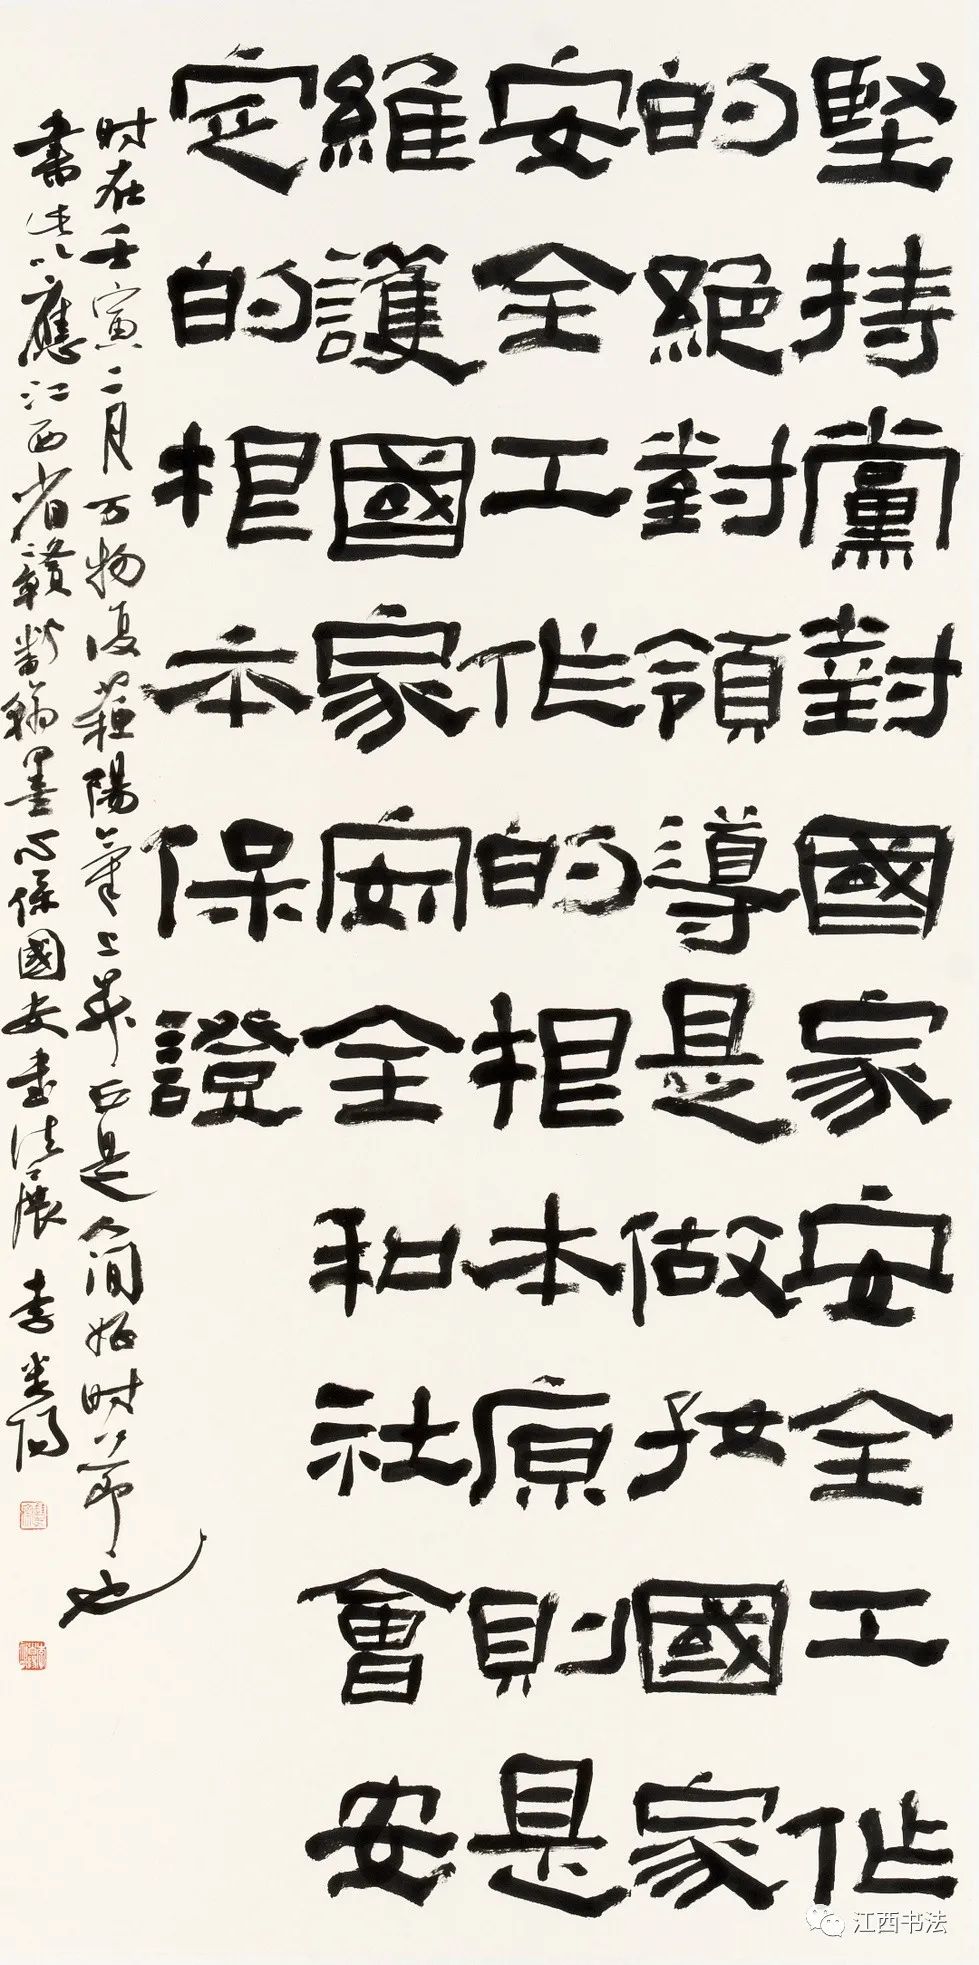 堅持黨對國家安全工作
的絕對領導是做好國家
安全工作的根本原則是
維護國家安全和社會安
定的根本保證
时在壬寅二月万物復蘓陽氣上昇正是人间好时節也
書此以應江西省赣鄱翰墨心保國安書法展 李
江西书法